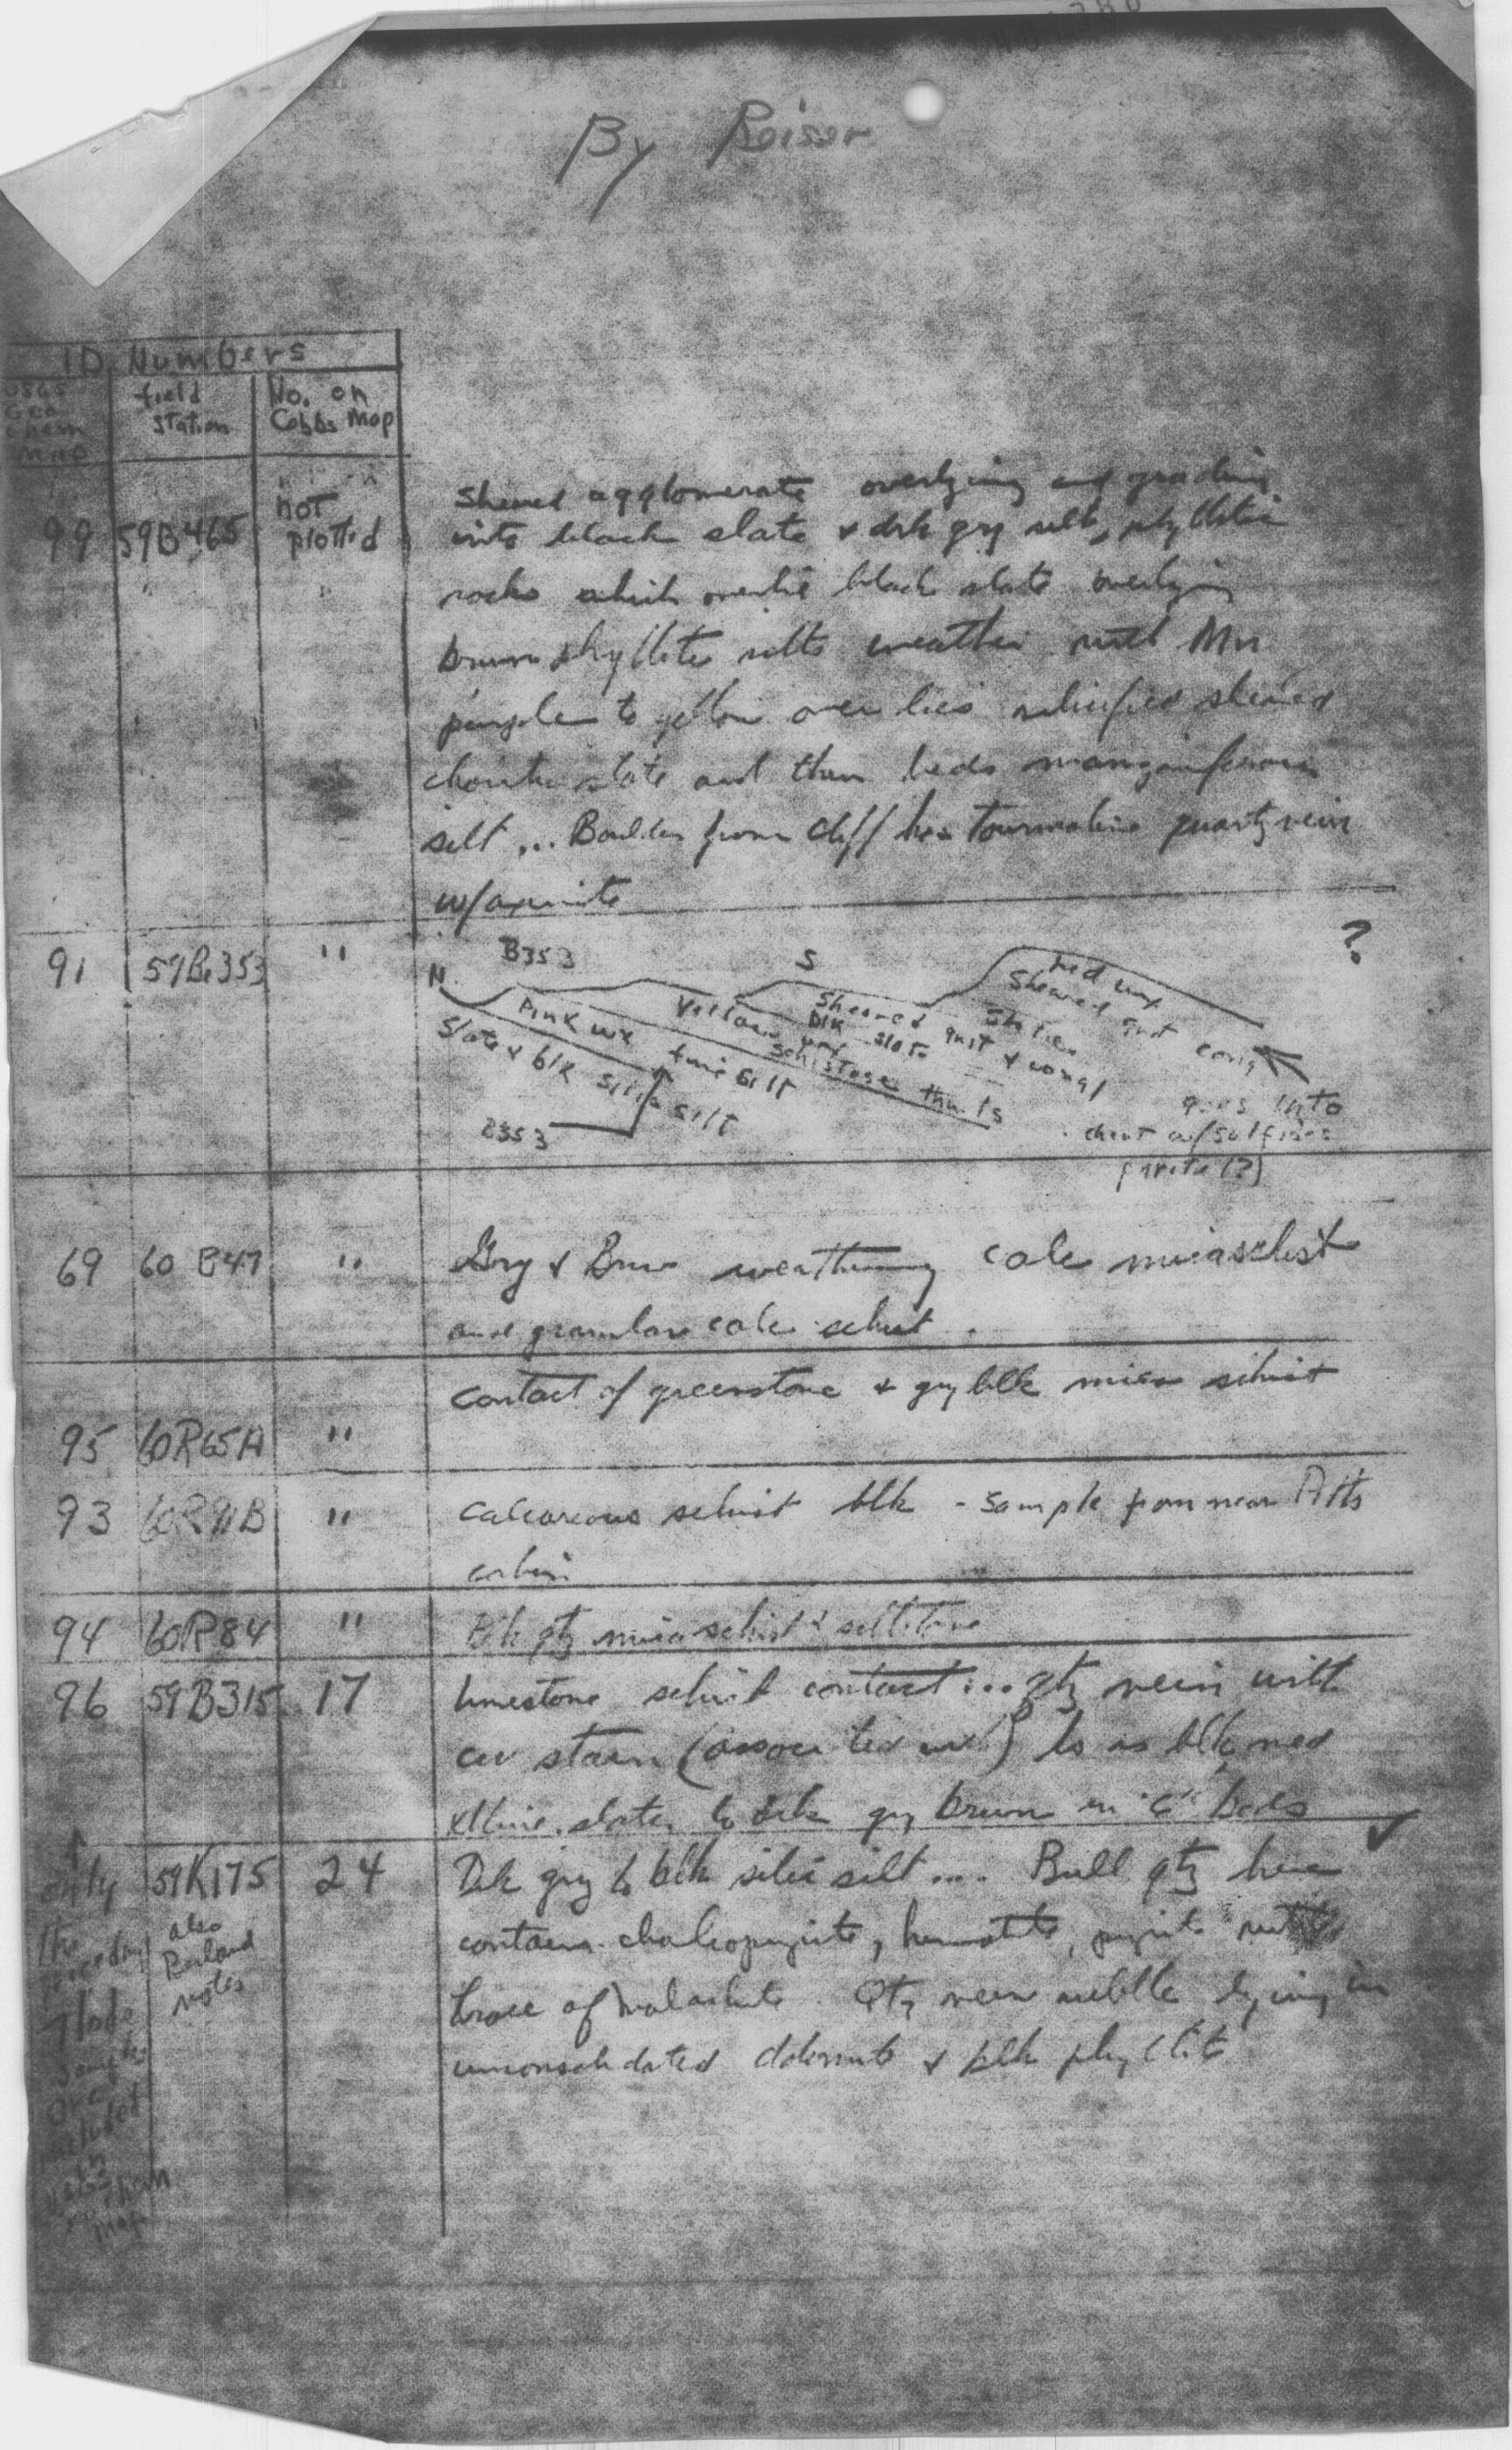 By Reiser
ID Numbers
USGS Geo Chem Map
field station
No. on Cobbs Map
99 59B465 not plotted
Sheared agglomerate overlying and grading
into black slate & drk gry silt, phyllitic
rocks which overlie black slate overlying
brown phyllite silts weather with Mn
purple to yellow over lies silicified sheared
slate and then beds manganiferous
silt ... Boulder from cliff has tourmaline quartz vein
w/axinite
91 59Be353 "
B353
N
S
?
red wx
Sheared grit cong
Sheared grit & congl
blk slate
Yellow wx
schistose
Pink wx fine silt
Slate & blk silic silt
B353
goes into
chert w/sulfides
pyrite (?)
69 60 B47 "
Gry & Brn weathering calc micaschist
and granular calc schist.
contact of greenstone & gry blk mica schist
95 60R65A "
93 60R91B "
calcareous schist blk - sample from near
cabin
94 60R84 "
Blk qtz mica schist & siltstone
96 59B315 17
limestone schist contact ... qtz vein with
cu stain (associated wx?) ls is blk med
xlline. slate, to drk gry brown in 6" beds
59K175 24
also
notes
Drk gry to blk silic silt .... Bull qtz here
contains chalcopyrite, hematite, pyrite with
trace of malachite. Qtz vein rubble lying in
unconsolidated dolomite & blk phyllite
only
the
preceding
7 lode
samples
are
included
in
USGS
geochem
map